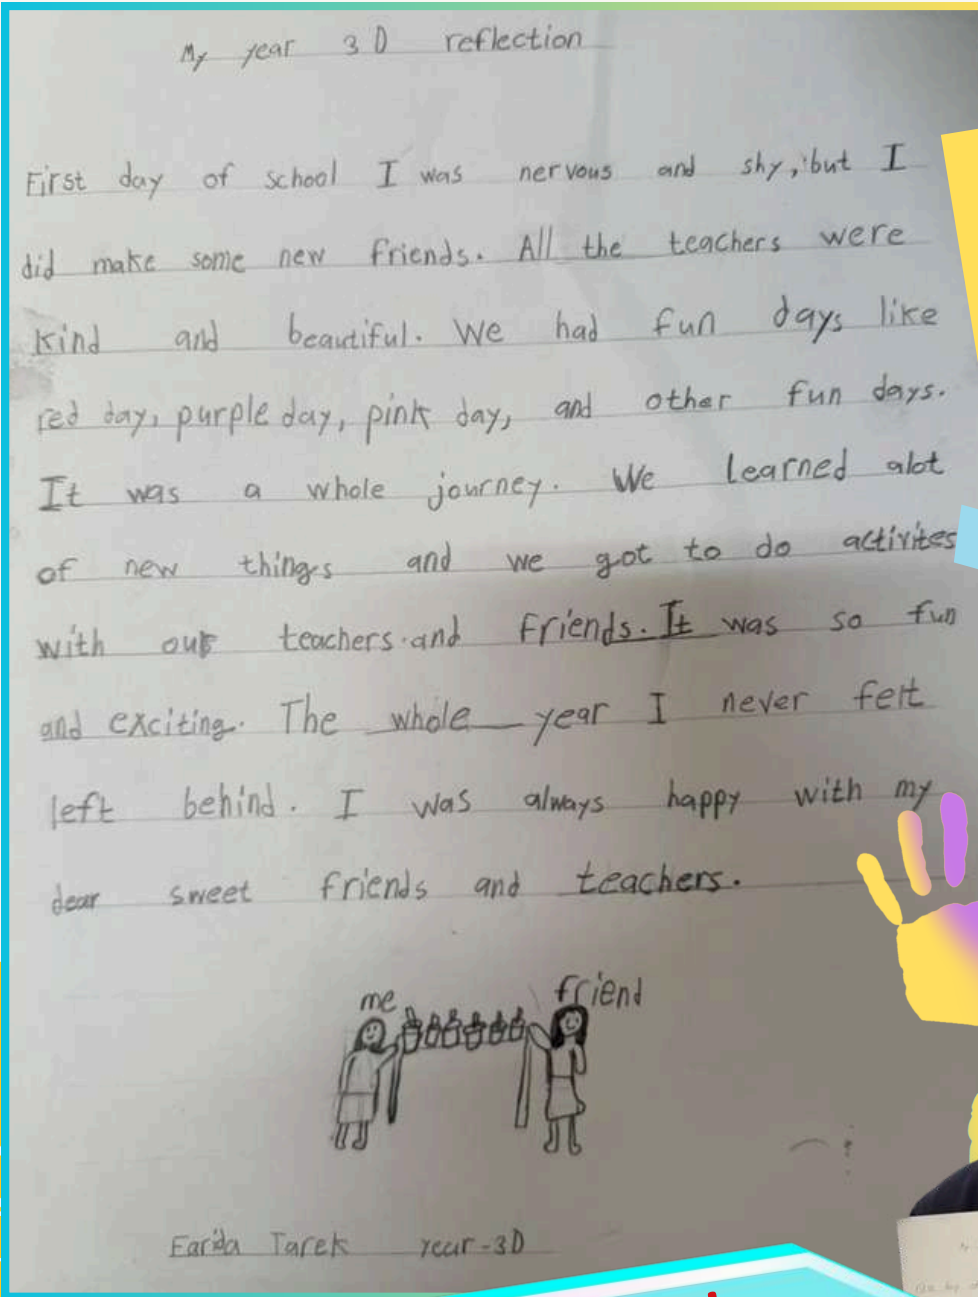 My year 3D reflection
First day of school I was nervous and shy, but I
did make some new friends. All the teachers were
kind and beautiful. We had fun days like
red day, purple day, pink day, and other fun days.
It was a whole journey. We learned alot
of new things and we got to do activites
with our teachers and friends. It was so fun
and exciting. The whole year I never felt
left behind. I was always happy with my
dear sweet friends and teachers.
me friend
Farida Tarek year-3D